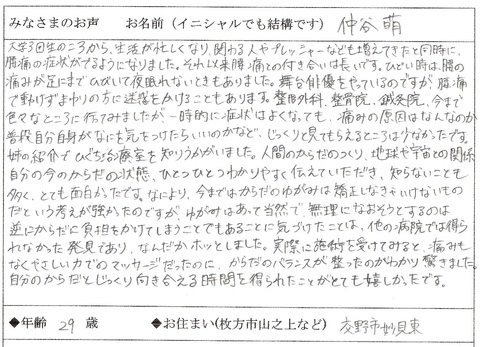 みなさまのお声　お名前（イニシャルでも結構です）　仲谷 萌
大学3回生のころから、生活が忙しくなり、関わる人やプレッシャーなども増えてきたと同時に、
腰痛の症状がでるようになりました。それ以来腰痛との付き合いは長いです。ひどい時は、腰の
痛みが足にまでひびいて夜眠れないときもありました。舞台俳優をやっているのですが、腰痛
で動けずまわりの方に迷惑をかけることもあります。整形外科、整骨院、鍼灸院、今まで
色々なところに行ってみましたが、一時的に症状はよくなっても、痛みの原因はなんなのか
普段自分自身がなにを気をつけたらいいのかなど、じっくりと見てもらえるところは少なかったです。
姉の紹介でひぐち治療室を知りうかがいました。人間のからだのつくり、地球や宇宙との関係
自分の今のからだの状態、ひとつひとつわかりやすく伝えていただき、知らないことも
多く、とても面白かったです。なにより、今まではからだのゆがみは矯正しなきゃいけないもの
だという考えが強かったのですが、ゆがみはあって当然で、無理になおそうとするのは
逆にからだに負担もかけてしまうことでもあることに気づけたことは、他の病院では得ら
れなかった発見であり、なんだかホッとしました。実際に施術を受けてみると、痛みも
なくやさしい力でのマッサージだったのに、からだのバランスが整ったのがわかり驚きました。
自分のからだとじっくり向き合える時間を得られたことがとても嬉しかったです。
◆年齢　29　歳　◆お住まい(枚方市山之上など)　交野市妙見東